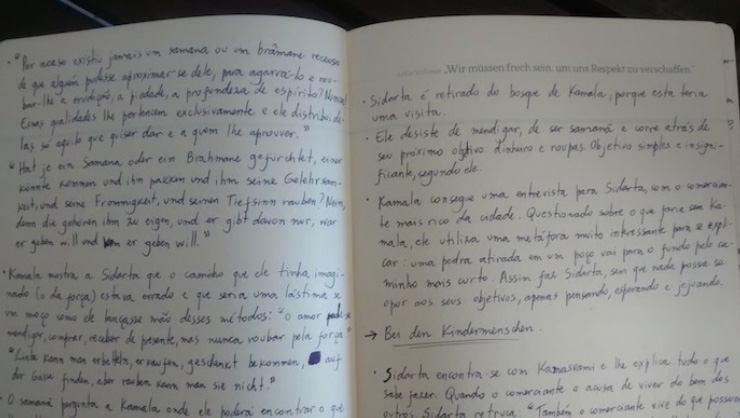 • "Por acaso existiu jamais um samana ou um brâmane receoso
de que alguém pudesse aproximar-se dele, para agarrá-lo e rou-
bar-lhe a erudição, a piedade, a profundeza de espírito? Nunca!
Essas qualidades lhe pertencem exclusivamente e ele distribui de-
las só aquilo que quiser dar e a quem lhe aprouver."
"Hat je ein Samana oder ein Brahmane gefürchtet, einer
könnte kommen und ihn packen und ihm seine Gelehrsam-
keit, und seine Frommigkeit, und seinen Tiefsinn rauben? Nein,
denn die gehören ihm zu eigen, und er gibt davon nur, was
er geben will und wem er geben will."
• Kamala mostra a Sidarta que o caminho que ele tinha imagi-
nado (o da força) estava errado e que seria uma lástima se
um moço como ele lançasse mão desses métodos: "o amor pode-se
mendigar, comprar, receber de presente, mas nunca roubar pela força"
"Liebe kann man erbetteln, erkaufen, geschenkt bekommen, auf
der Gasse finden, aber rauben kann man sie nicht."
• O samana pergunta a Kamala onde ele poderá encontrar o que
"Wir müssen frech sein, um uns Respekt zu verschaffen."
• Sidarta é retirado do bosque de Kamala, porque esta teria
uma visita.
• Ele desiste de mendigar, de ser samana e corre atrás de
seu próximo objetivo dinheiro e roupas. Objetivo simples e insigni-
ficante, segundo ele.
• Kamala consegue uma entrevista para Sidarta, com o comercian-
te mais rico da cidade. Questionado sobre o que faria sem Ka-
mala, ele utiliza uma metáfora muito interessante para se expli-
car: uma pedra atirada em um poço vai para o fundo pelo ca-
minho mais curto. Assim faz Sidarta, sem que nada possa se
opor aos seus objetivos, apenas pensando, esperando e jejuando.
→ Bei den Kindermenschen.
• Sidarta encontra-se com Kamaswami e lhe explica tudo o que
sabe fazer. Quando o comerciante o acusa de viver do bem dos
outros, Sidarta retruca: "Também o comerciante vive do que possuem